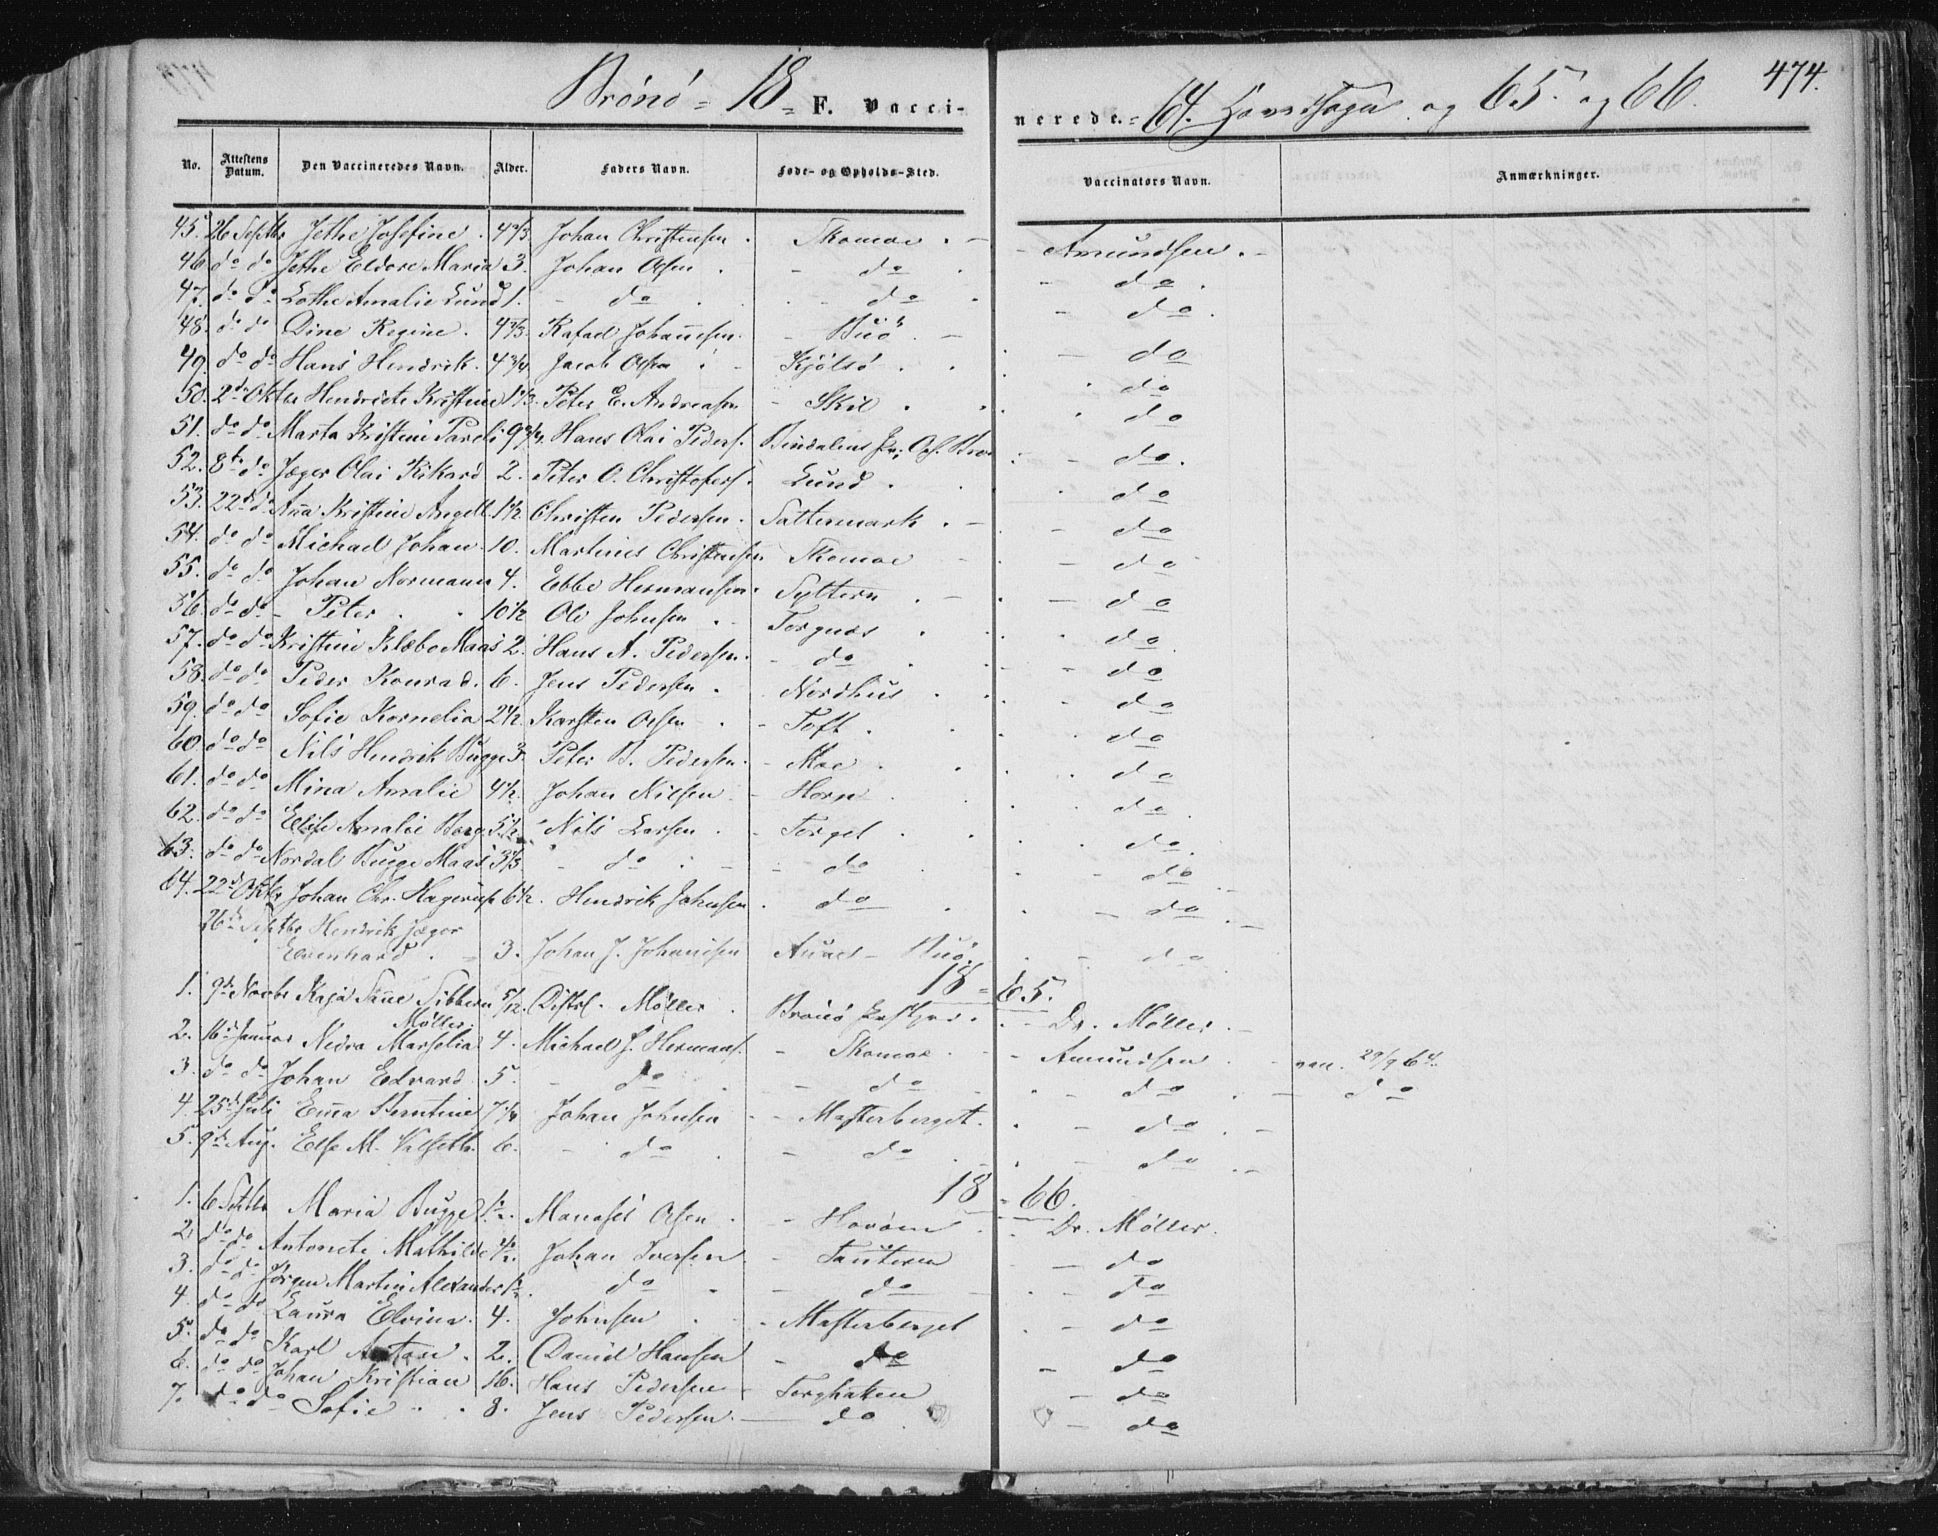 Brönö = 18 = F. Vaccinerede. = 64. Hovedsogn og 65 og 66. 474.
No. Attestens Datum. Den Vaccineredes Navn. Alder. Faders Navn. Føde- og Opholds-Sted. Vaccinators Navn. Anmærkninger.
45. 26 Septbr Jethe Josefine. 4 2/3 Johan Christensen. Skomoe. - Amundsen. -
46 do do Jethe Eldore Maria 3. Johan Olsen. - do - do.
47. do do Lothe Amalie Lund 1. - do - do - do.
48. do do Dine Regine. 4 2/3 Rafael Johannesen. - Buö - do
49. do do Hans Hendrik. 4 3/4. Jacob Olsen Kjölsö. do
50. 2den Oktbr Hendriete Kristine 1 1/3. Peter E. Andreasen - Skil. do
51. do do Marta Kristine Pareli 9 3/4. Hans Olai Peders. Bindalens Do.
52. 8de do Jæger Olai Rikard 2. Peter O. Christofers. Lund. do
53. 22de do Anna Kristine Angell. 1 1/2. Christen Pedersen. Saltermark. - do
54. do do Michael Johan 10. Martinus Christensen Skomoe - do
55. do do Johan Normann 4. Ebbe Hermansen. Syltern. - do
56. do do - Peter. 10 1/2 Ole Johnsen. Torgnæs. do
57. do do Kristine Klæbo Maas 2. Hans A. Pedersen. - do - do
58. do do Peder Konrad. 6. Jens Pedersen. Nordhus. do
59. do do Sofie Kornelia 2 1/2. Karsten Olsen - Toft. do
60 do do Nils Hendrik Bugge 3. Peter B. Pedersen. - Moe. do
61. do do Mina Amalie 4 1/2. Johan Nilsen - Horn do
62. do do Elise Amalie Borg 5 1/2. Nils Larsen. - Torget. do
63. do do Nordal Bugge Maas 3 1/3 - do - do do
64. 22de Oktbr Johan Chr. Hagerup 6 1/2. Hendrik Johnsen. do - do -
26de Septbr Hendrik Jæger
Evenhard. - 3. Johan J. Johannesen - Buö. - do
18 = 65.
1. 9de Novbr Kaja Sanne Sibbern 5/12. Distrl. Möller. Brönö Prestgrd. - Dr. Möller. -
Möller.
2. 16de Januar Nedra Marselia 4. Michael J. Hermans. - Skomoe - Amundsen. - vac. 29/9 64.
3. do do Johan Edvard 5. - do - do do - do
4. 25de Juli Emma Berntine 7 1/4 Johan Johnsen - Masterberget. - do. -
5. 9de Aug. Else M. Valseth. 6. - do - do. - do. -
18 = 66.
1. 6 Septbr Maria Bugge 1/2. Manases Olsen. - Havöen - Dr. Möller.
2. do do Antonete Mathilde Johan Iversen - Tauteren - do
3. do do Jörgen Martin Alexander do - do - do
4. do do Laura Elvine. 4. Johnsen. - Masterberget - do
5. do do Karl Anton. 2. David Hansen - do - do
6. do do Johan Kristian 16. Hans Pedersen Torghatten - do
7. do do Sofie. 8. Jens Pedersen. - do. - do